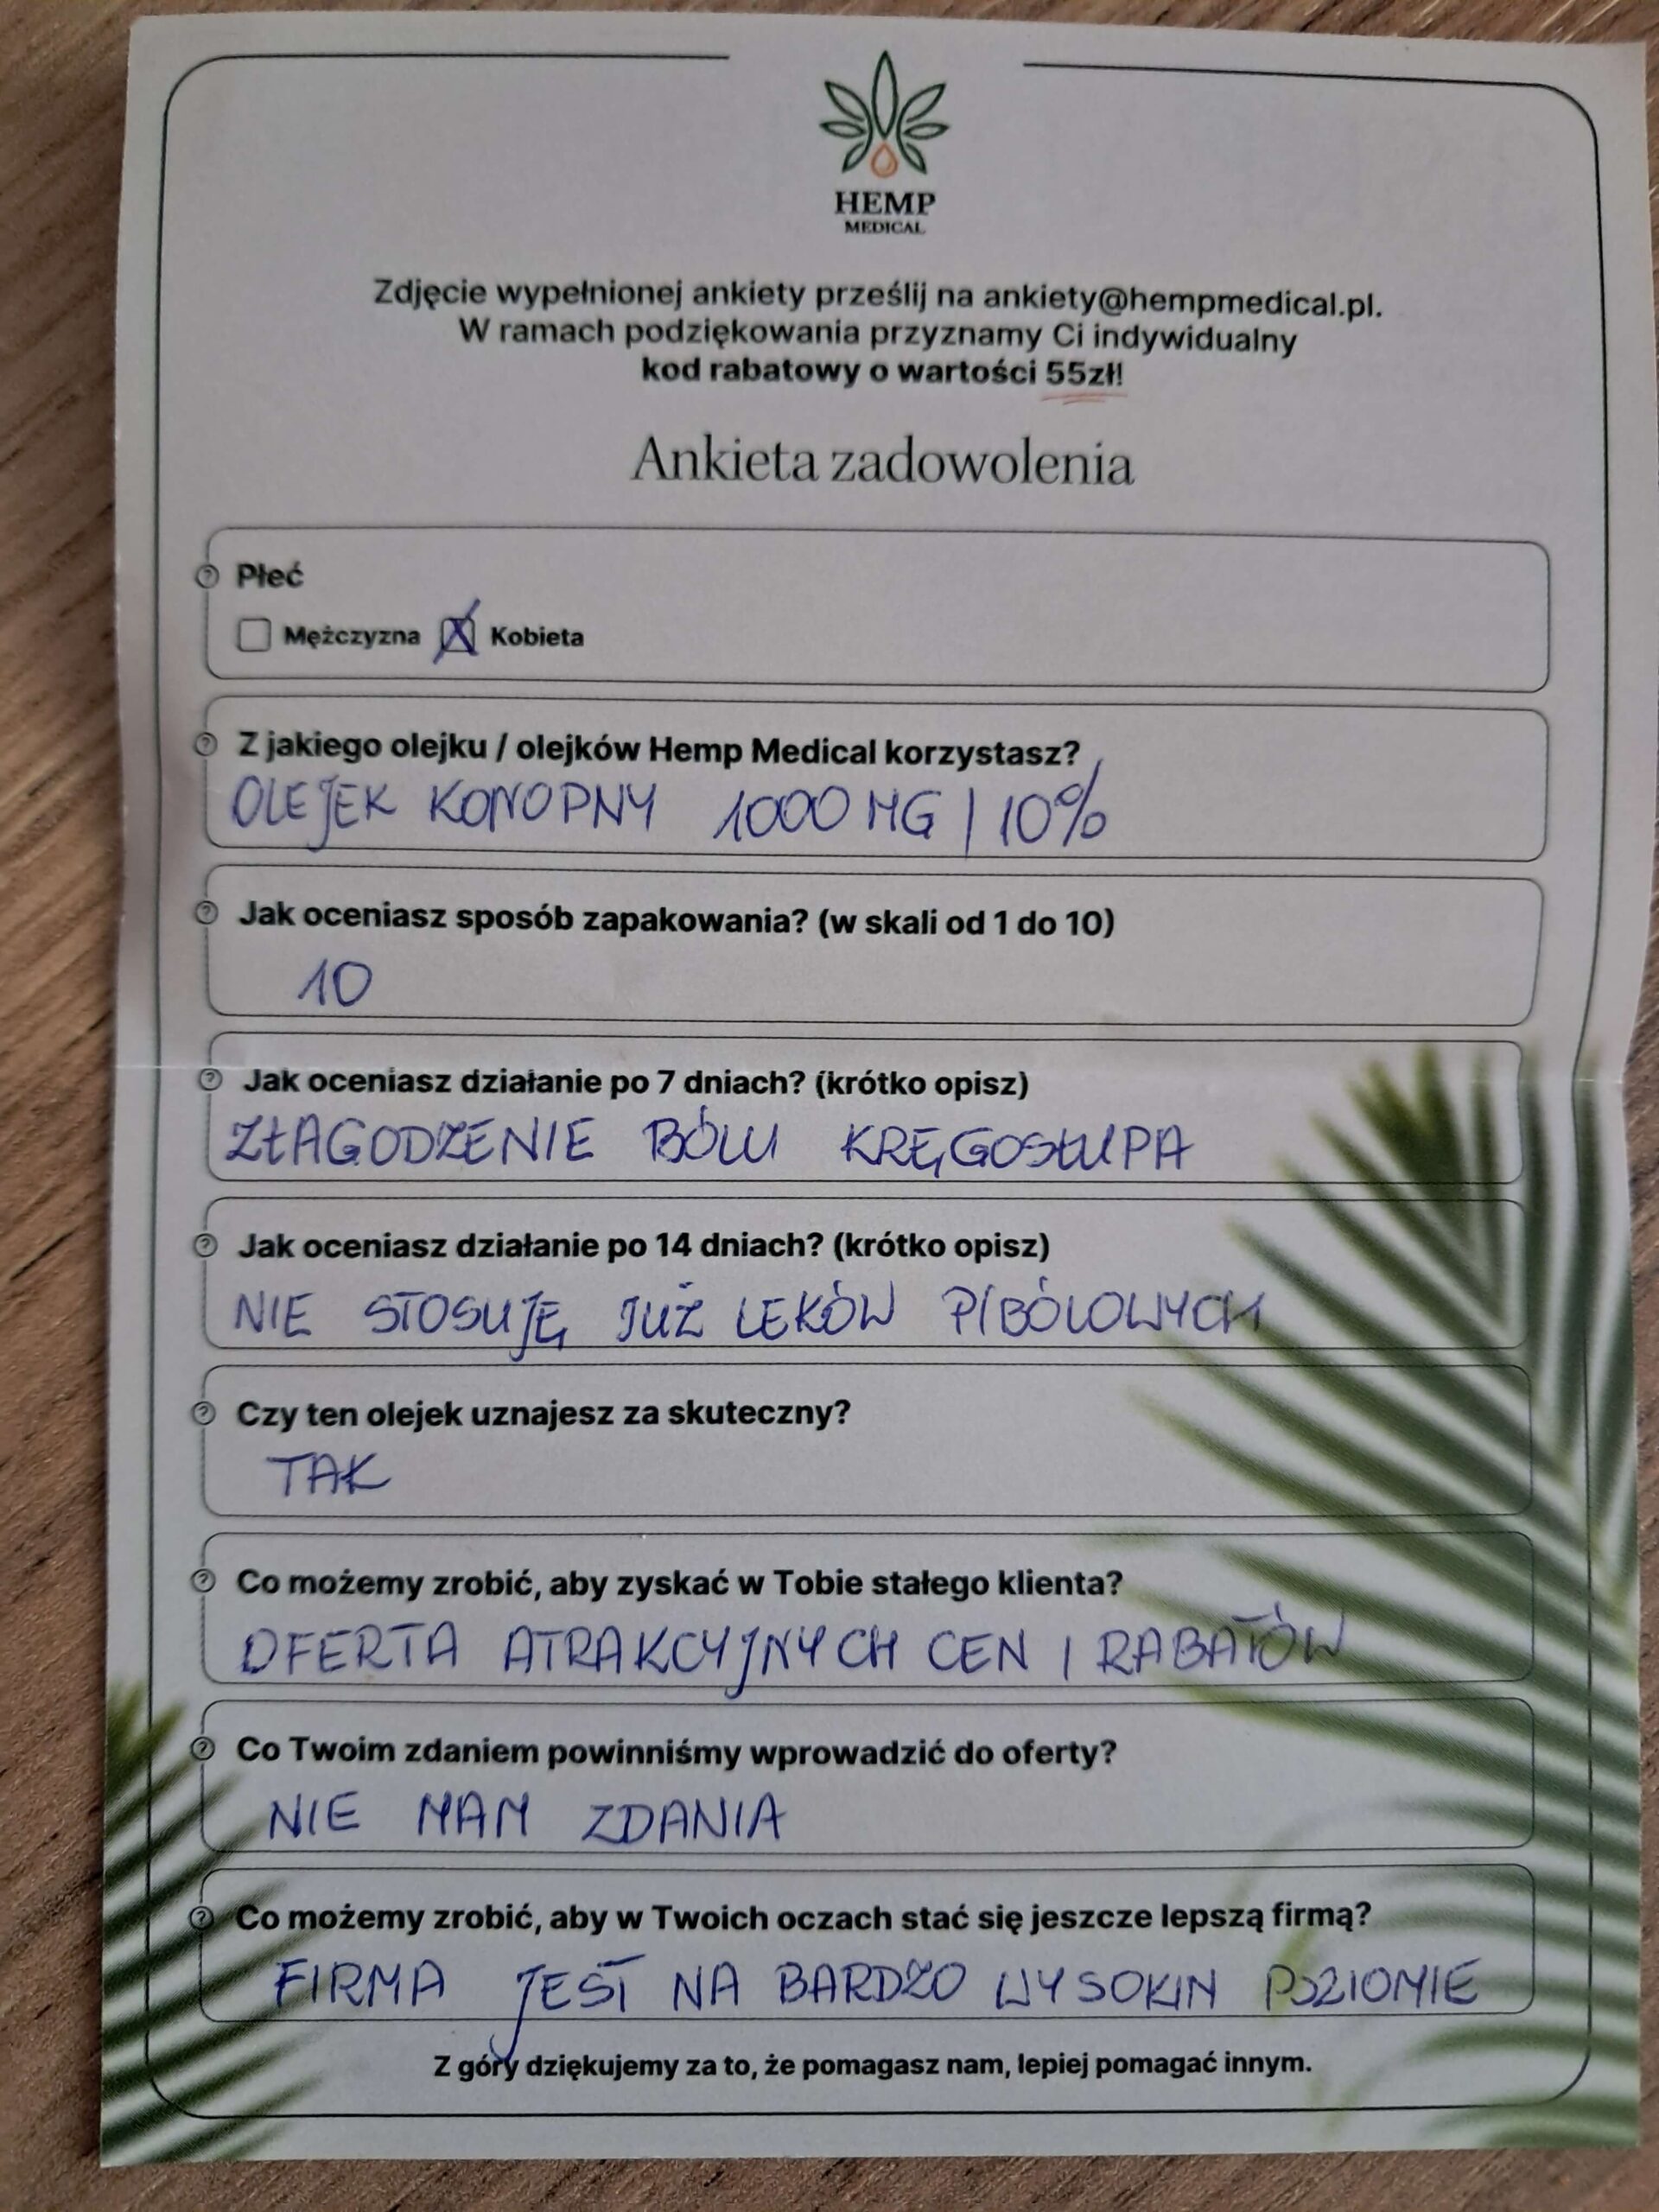 HEMP
MEDICAL
Zdjęcie wypełnionej ankiety prześlij na ankiety@hempmedical.pl.
W ramach podziękowania przyznamy Ci indywidualny
kod rabatowy o wartości 55zł!
Ankieta zadowolenia
Płeć
Mężczyzna X Kobieta
Z jakiego olejku / olejków Hemp Medical korzystasz?
OLEJEK KONOPNY 1000 MG | 10%
Jak oceniasz sposób zapakowania? (w skali od 1 do 10)
10
Jak oceniasz działanie po 7 dniach? (krótko opisz)
ZŁAGODZENIE BÓLU KRĘGOSŁUPA
Jak oceniasz działanie po 14 dniach? (krótko opisz)
NIE STOSUJĘ JUŻ LEKÓW P/BÓLOWYCH
Czy ten olejek uznajesz za skuteczny?
TAK
Co możemy zrobić, aby zyskać w Tobie stałego klienta?
OFERTA ATRAKCYJNYCH CEN I RABATÓW
Co Twoim zdaniem powinniśmy wprowadzić do oferty?
NIE MAM ZDANIA
Co możemy zrobić, aby w Twoich oczach stać się jeszcze lepszą firmą?
FIRMA JEST NA BARDZO WYSOKIM POZIOMIE
Z góry dziękujemy za to, że pomagasz nam, lepiej pomagać innym.